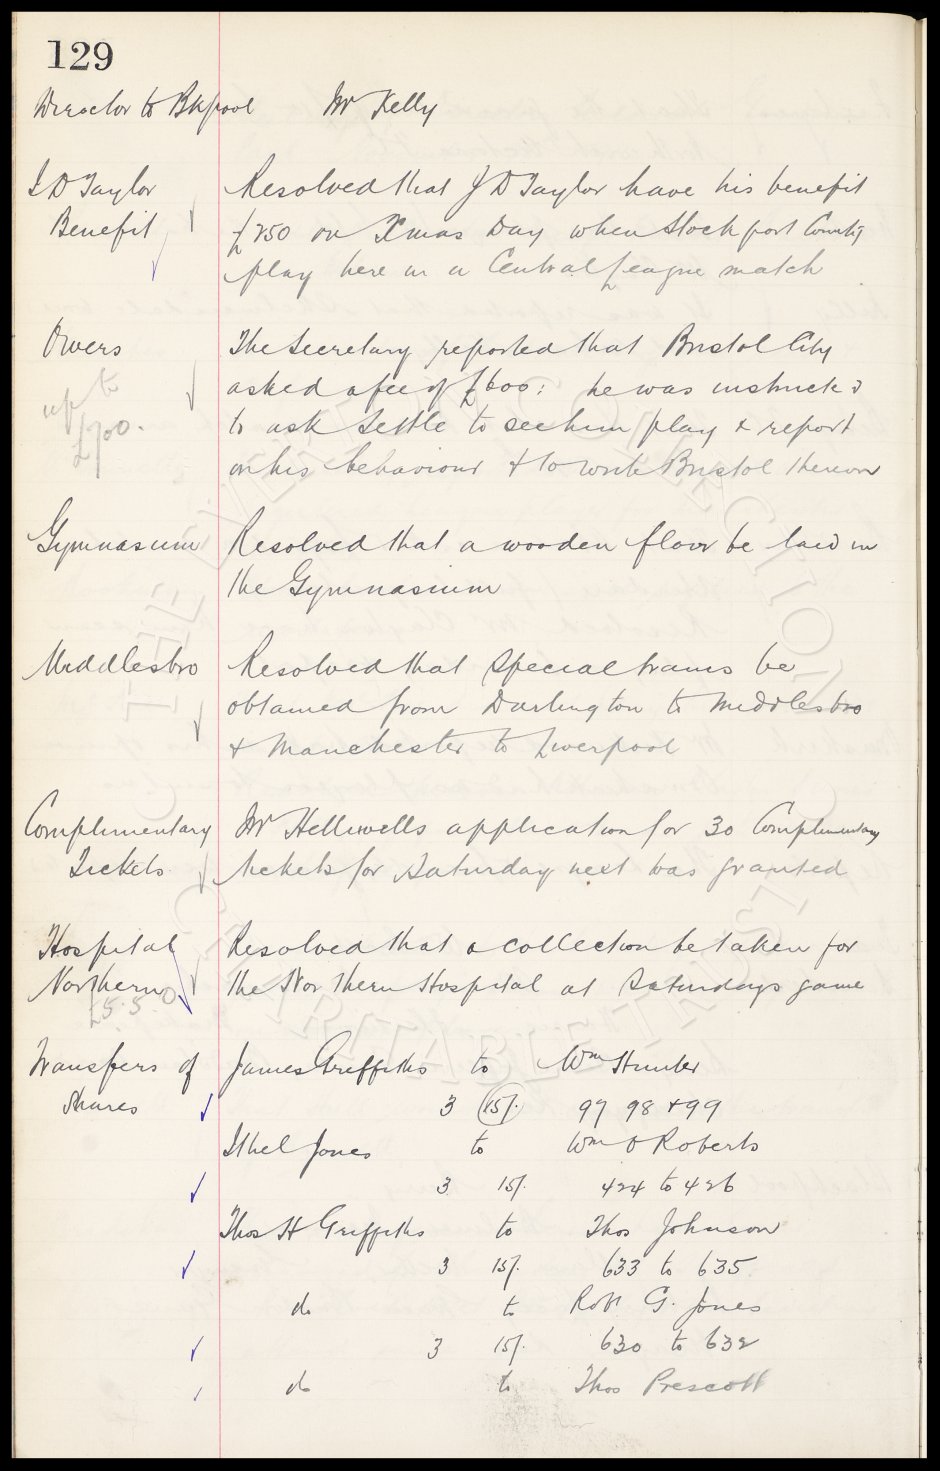 129
Director to Bkpool Mr Kelly
J D Taylor Resolved that J D Taylor have his benefit
Benefit £250 on Xmas Day when Stockport County
play here in a Central League match
Owers The Secretary reported that Bristol City
up to asked a fee of £600: he was instructed
£700. to ask Settle to see him play & report
on his behaviour & to write Bristol thereon
Gymnasium Resolved that a wooden floor be laid in
the Gymnasium
Middlesbro Resolved that Special trains be
obtained from Darlington to Middlesbro
& Manchester to Liverpool
Complimentary Mr Helliwells application for 30 Complimentary
Tickets tickets for Saturday next was granted
Hospital Resolved that a collection be taken for
Northern the Northern Hospital at Saturdays game
£5.5.0
Transfers of James Griffiths to Wm Hunter
Shares 3 15/- 97 98 & 99
Ithel Jones to Wm O Roberts
3 15/- 424 to 426
Thos H Griffiths to Thos Johnson
3 15/- 633 to 635
do to Robt G. Jones
3 15/- 630 to 632
do to Thos Prescott
THE EVERTON COLLECTION
CHARITABLE TRUST